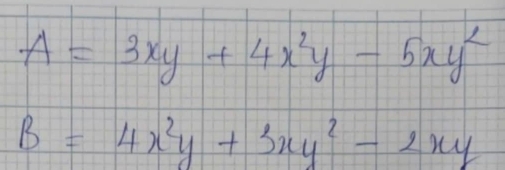 A = 3xy + 4x²y - 5xy²
B = 4x²y + 3xy² - 2xy